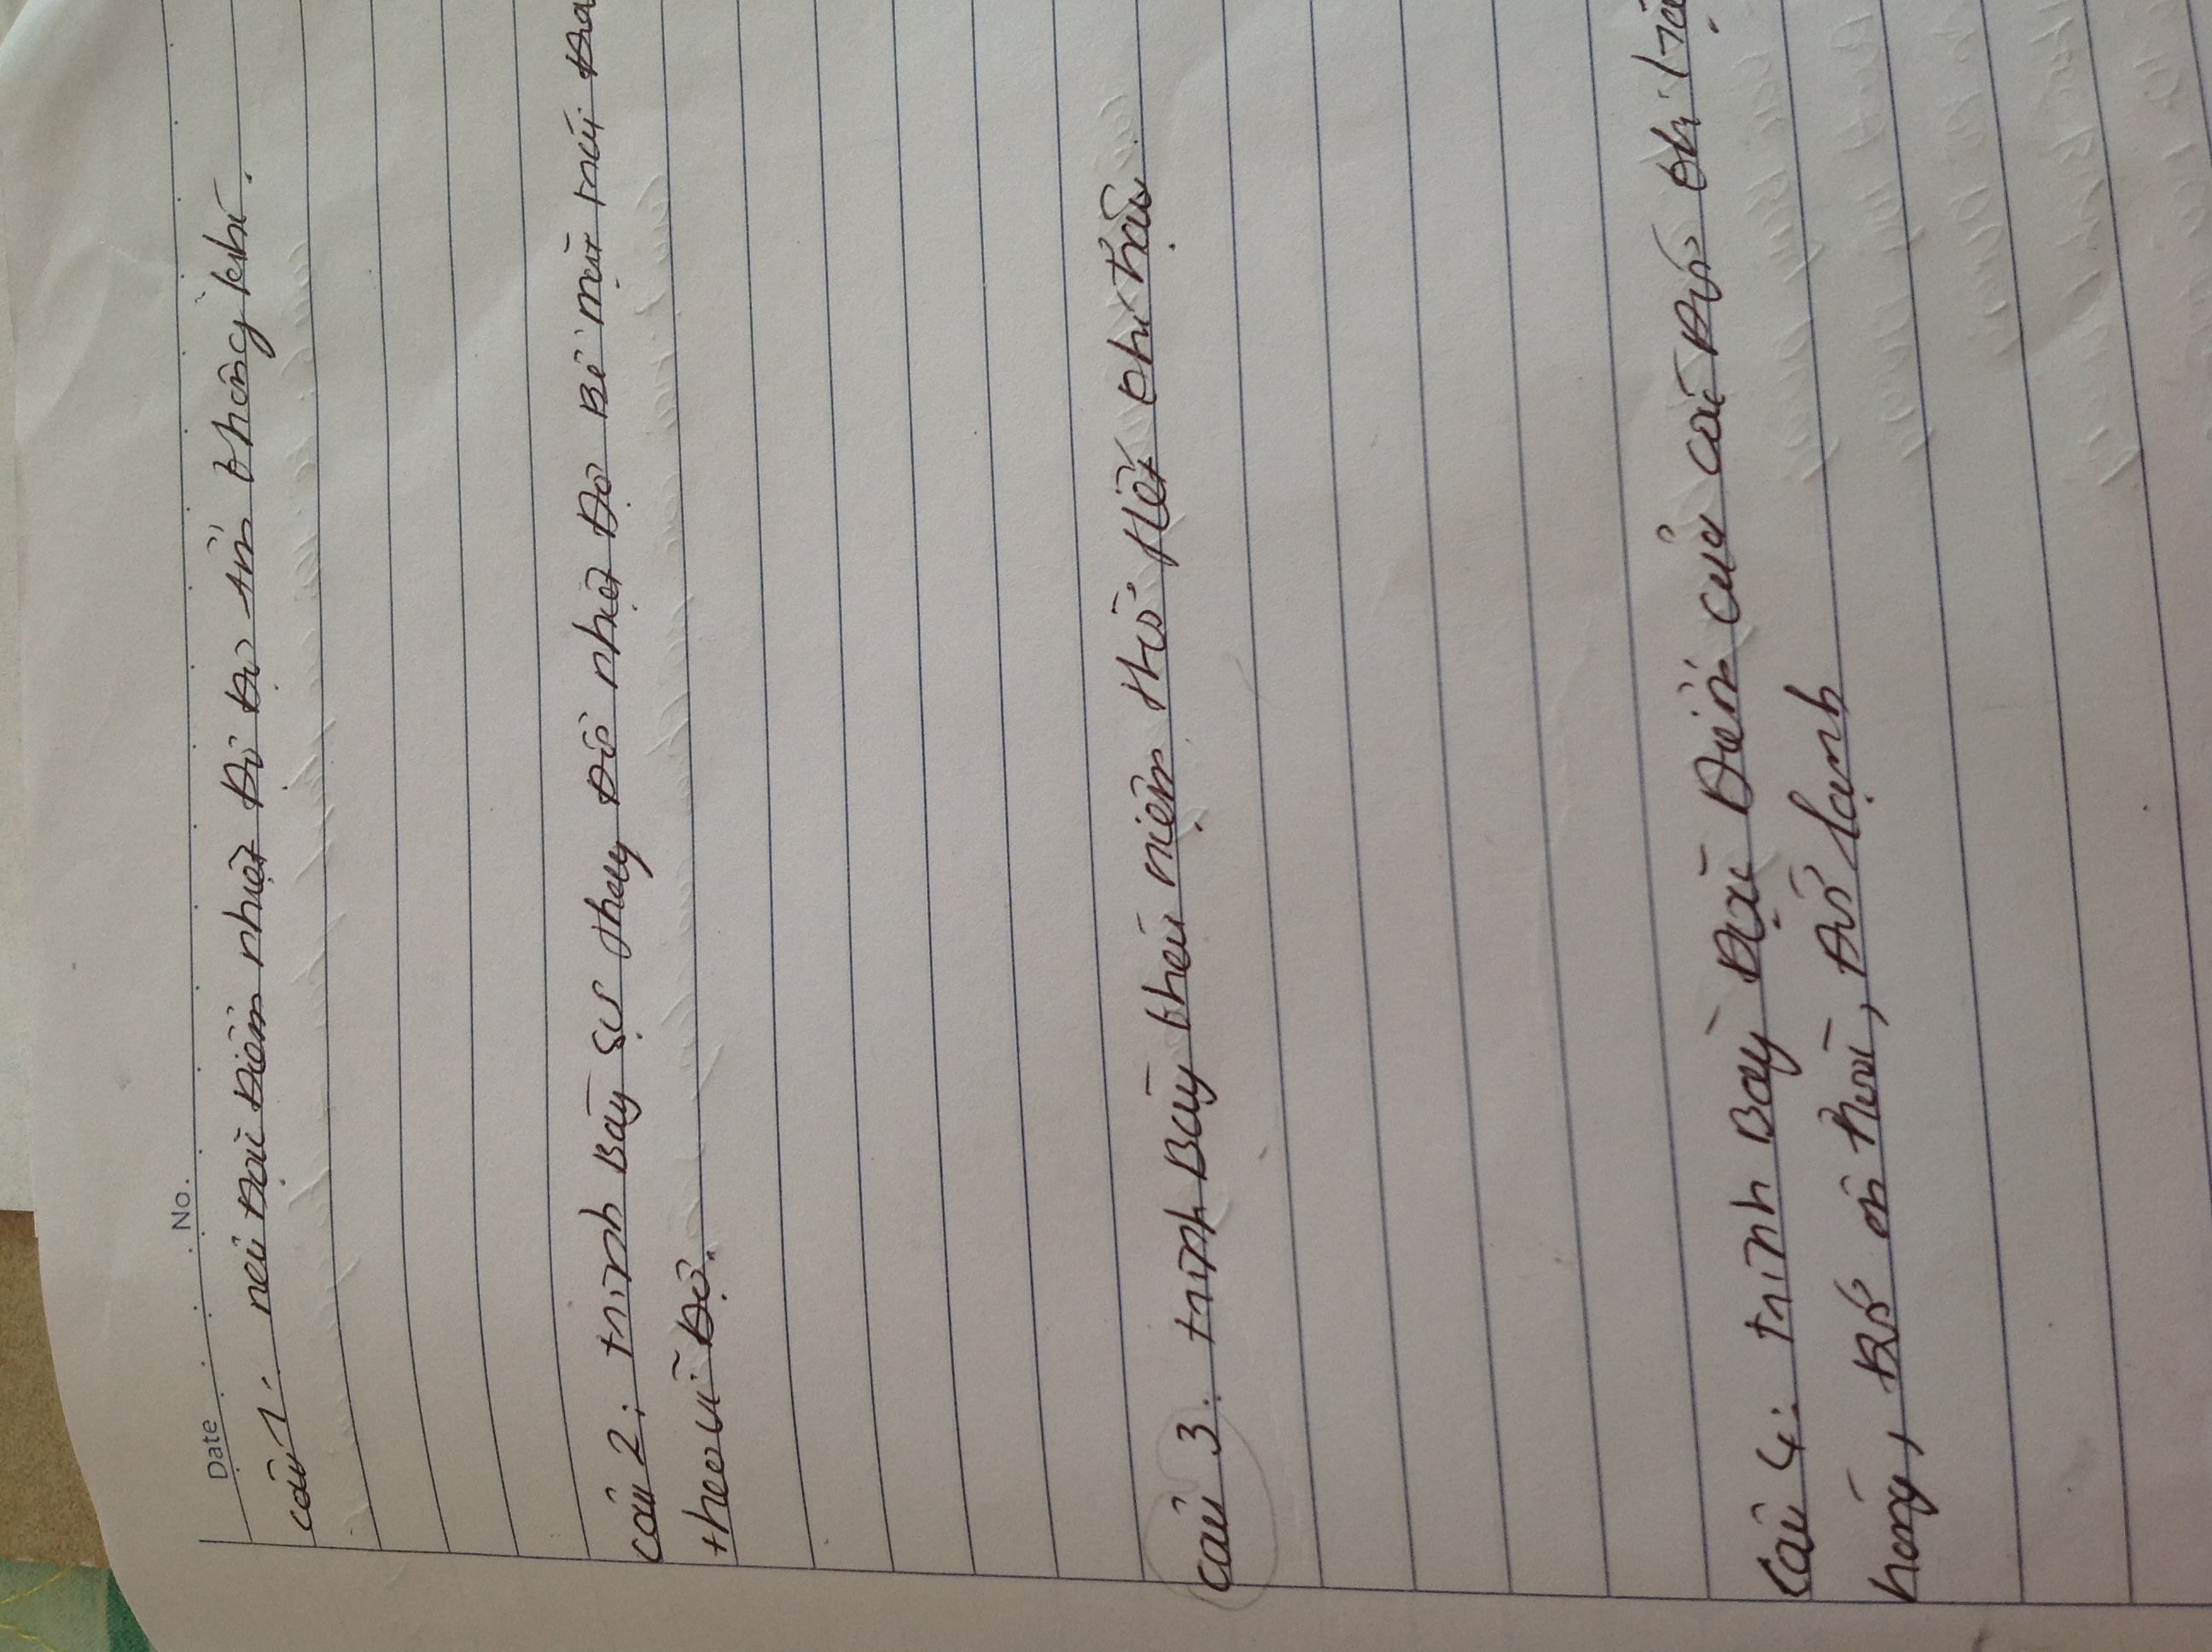 No.
Date
câu 1. nêu đặc điểm nhiệt độ độ ẩm không khí.
câu 2: trình bày sự thay đổi nhiệt độ bề mặt trái đất
theo vĩ độ.
câu 3. trình bày khái niệm thổ
câu 4: trình bày đặc điểm của các đới khí hậu
nóng, đới ôn hoà, đới lạnh